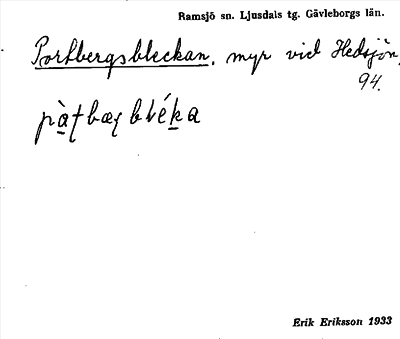 Ramsjö sn. Ljusdals tg. Gävleborgs län.
Portbergsbleckan, myr vid Hedsjön,
94.
Erik Eriksson 1933